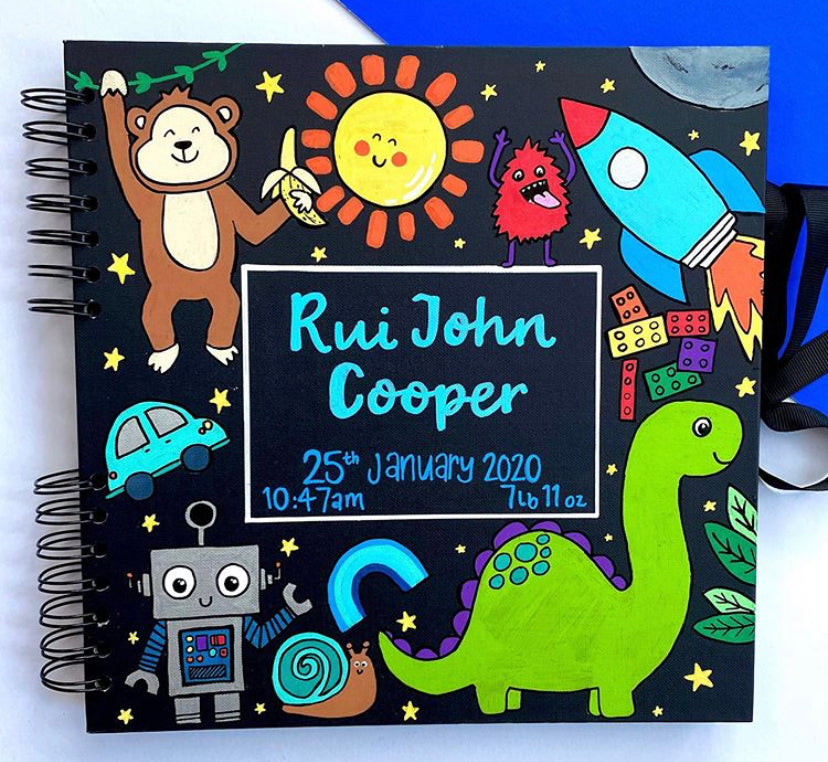 Rui John
Cooper
25th January 2020
10:47am 7lb 11oz